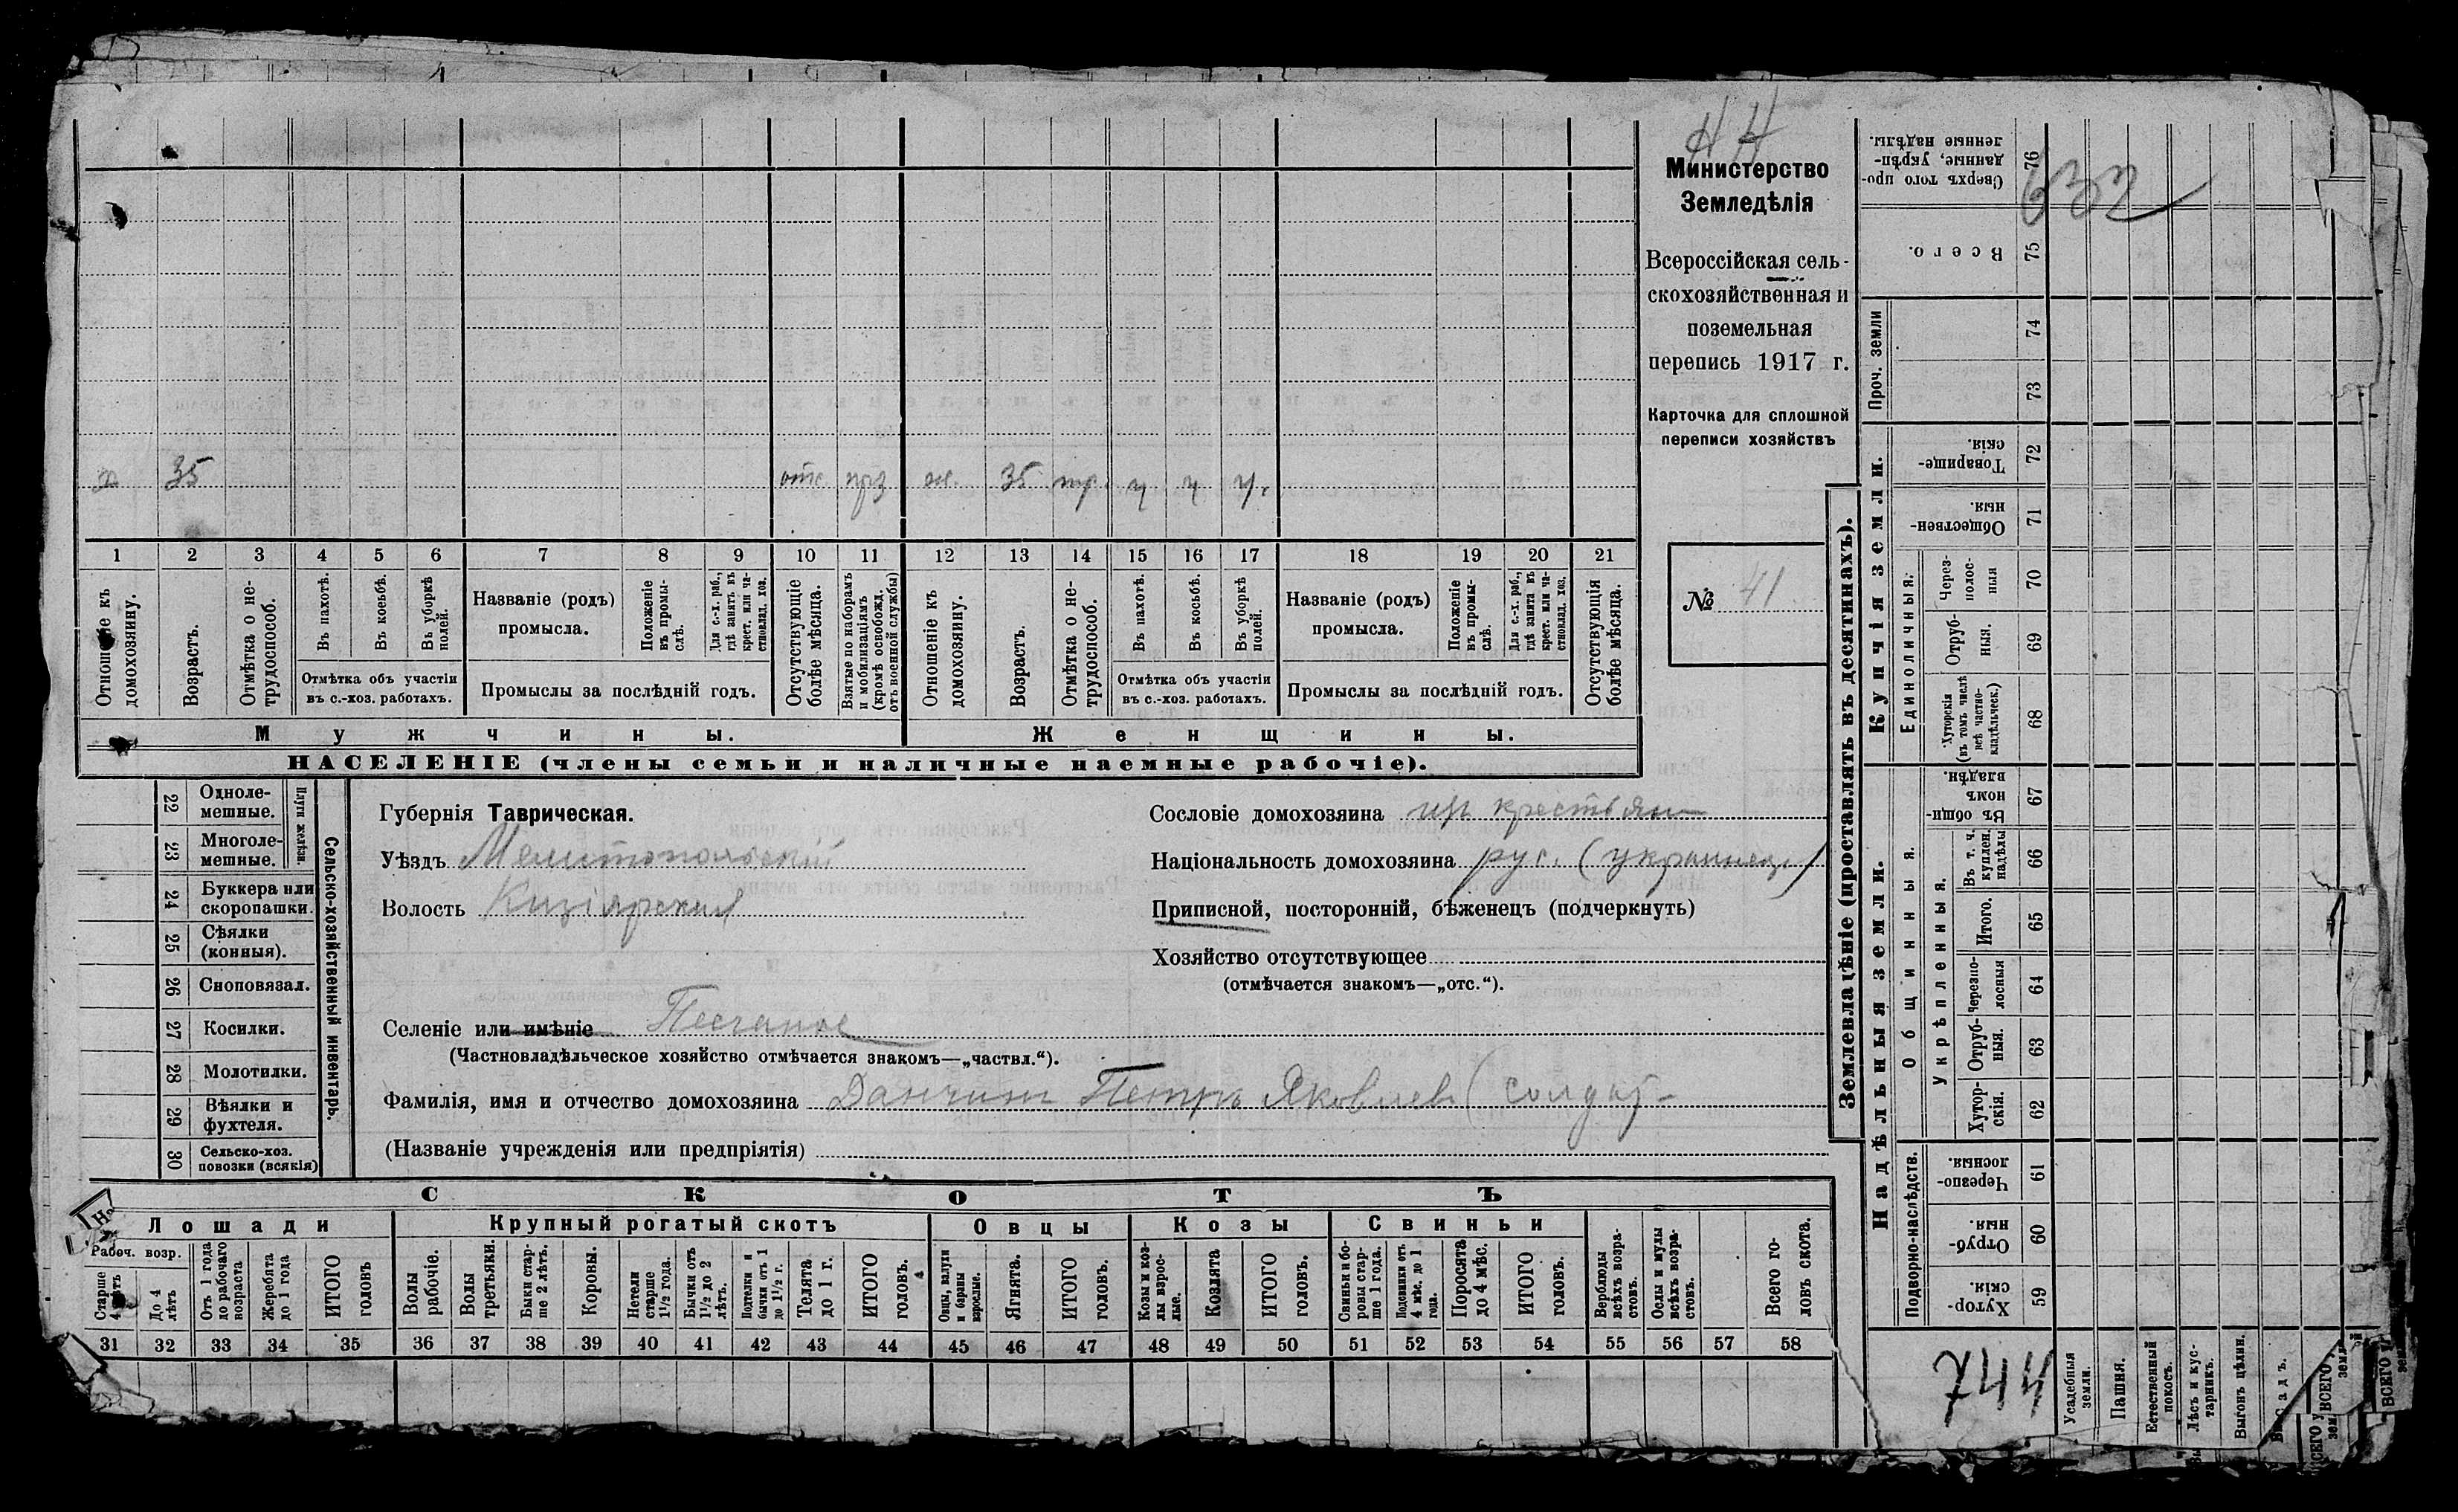 НН
Министерство
Земледѣлія
Всероссійская сель-
скохозяйственная и
поземельная
перепись 1917 г.
Карточка для сплошной
переписи хозяйствъ
№ 41
х 35 отс. ж. 35 тр. ч ч ч.
1 2 3 4 5 6 7 8 9 10 11 12 13 14 15 16 17 18 19 20 21
Отношеніе къ домохозяину.
Возрастъ.
Отмѣтка о не-
трудоспособ.
Въ пахотѣ.
Въ косьбѣ.
Въ уборкѣ
полей.
Отмѣтка объ участіи
въ с.-хоз. работахъ.
Названіе (родъ)
промысла.
Положеніе
въ промы-
слѣ.
Для с.-х. раб.,
гдѣ занятъ въ
крест. или ча-
стновлад. хоз.
Промыслы за послѣдній годъ.
Отсутствующіе
болѣе мѣсяца.
Взятые по наборамъ
и мобилизаціямъ
(кромѣ освобожд.
отъ военной службы)
Отношеніе къ
домохозяину.
Возрастъ.
Отмѣтка о не-
трудоспособ.
Въ пахотѣ.
Въ косьбѣ.
Въ уборкѣ
полей.
Отмѣтка объ участіи
въ с.-хоз. работахъ.
Названіе (родъ)
промысла.
Положеніе
въ промы-
слѣ.
Для с.-х. раб.,
гдѣ занята въ
крест. или ча-
стновлад. хоз.
Промыслы за послѣдній годъ.
Отсутствующія
болѣе мѣсяца.
Мужчины. Женщины.
НАСЕЛЕНІЕ (члены семьи и наличные наемные рабочіе).
Сельско-хозяйственный инвентарь.
Плуги желѣзн.
22 Одноле-
мешные.
23 Многоле-
мешные.
24 Буккера или
скоропашки.
25 Сѣялки
(конныя).
26 Сноповязал.
27 Косилки.
28 Молотилки.
29 Вѣялки и
фухтеля.
30 Сельско-хоз.
повозки (всякія)
Губернія Таврическая.
Уѣздъ Мелитопольскій
Волость Кизіярская
Сословіе домохозяина изъ крестьян
Національность домохозяина рус. (украинец)
Приписной, посторонній, бѣженецъ (подчеркнуть)
Хозяйство отсутствующее
(отмѣчается знакомъ—„отс.“).
Селеніе или имѣніе Песчаное
(Частновладѣльческое хозяйство отмѣчается знакомъ—„частвл.“).
Фамилія, имя и отчество домохозяина Данчин Петръ Яковлев (солдат
(Названіе учрежденія или предпріятія)
СКОТЪ
Лошади
Рабоч. возр.
Старше
4 лѣтъ
До 4
лѣтъ
Отъ 1 года
до рабочаго
возраста
Жеребята
до 1 года
ИТОГО
головъ
Крупный рогатый скотъ
Волы
рабочіе.
Волы
третьяки.
Быки стар-
ше 2 лѣтъ.
Коровы.
Нетели
старше
1½ года.
Бычки отъ
1½ до 2
лѣтъ.
Подтелки и
бычки отъ 1
до 1½ г.
Телята
до 1 г.
ИТОГО
головъ.
Овцы
Овцы, валухи
и бараны
взрослые.
Ягнята.
ИТОГО
головъ.
Козы
Козы и коз-
лы взрос-
лые.
Козлята
ИТОГО
головъ.
Свиньи
Свиньи и бо-
ровы стар-
ше 1 года.
Подсвинки отъ
4 мѣс. до 1
года.
Поросята
до 4 мѣс.
ИТОГО
головъ.
Верблюды
всѣхъ возра-
стовъ.
Ослы и мулы
всѣхъ возра-
стовъ.
Всего го-
ловъ скота.
31 32 33 34 35 36 37 38 39 40 41 42 43 44 45 46 47 48 49 50 51 52 53 54 55 56 57 58
Землевладѣніе (проставлять въ десятинахъ).
632
76 Сверхъ того про-
данные, укрѣп-
ленные надѣлы.
75 Всего.
Проч. земли
74
73
Купчія земли.
72 Товарище-
скія.
71 Обществен-
ныя.
Единоличныя.
70 Через-
полос-
ныя
69 Отруб-
ныя.
68 Хуторскія
(въ томъ числѣ
всѣ частно-
владѣльческ.)
Надѣльныя земли.
Общинныя.
67 Въ общин-
номъ
владѣн.
Укрѣпленныя.
66 Въ т. ч.
куплен.
надѣлы
65 Итого.
64 Черезпо-
лосныя
63 Отруб-
ныя.
62 Хутор-
скія.
Подворно-наслѣдств.
61 Черезпо-
лосныя.
60 Отруб-
ныя.
59 Хутор-
скія.
744
Усадебныя
земли.
Пашня.
Естественный
покосъ.
Лѣсъ и кус-
тарникъ.
Выгонъ цѣлин.
Садъ.
ВСЕГО